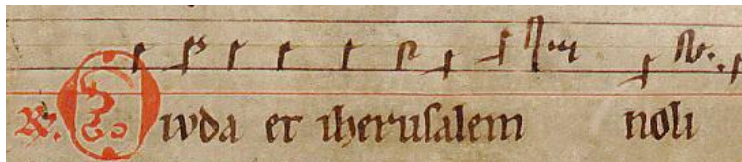 ℟. O iuda et iherusalem noli